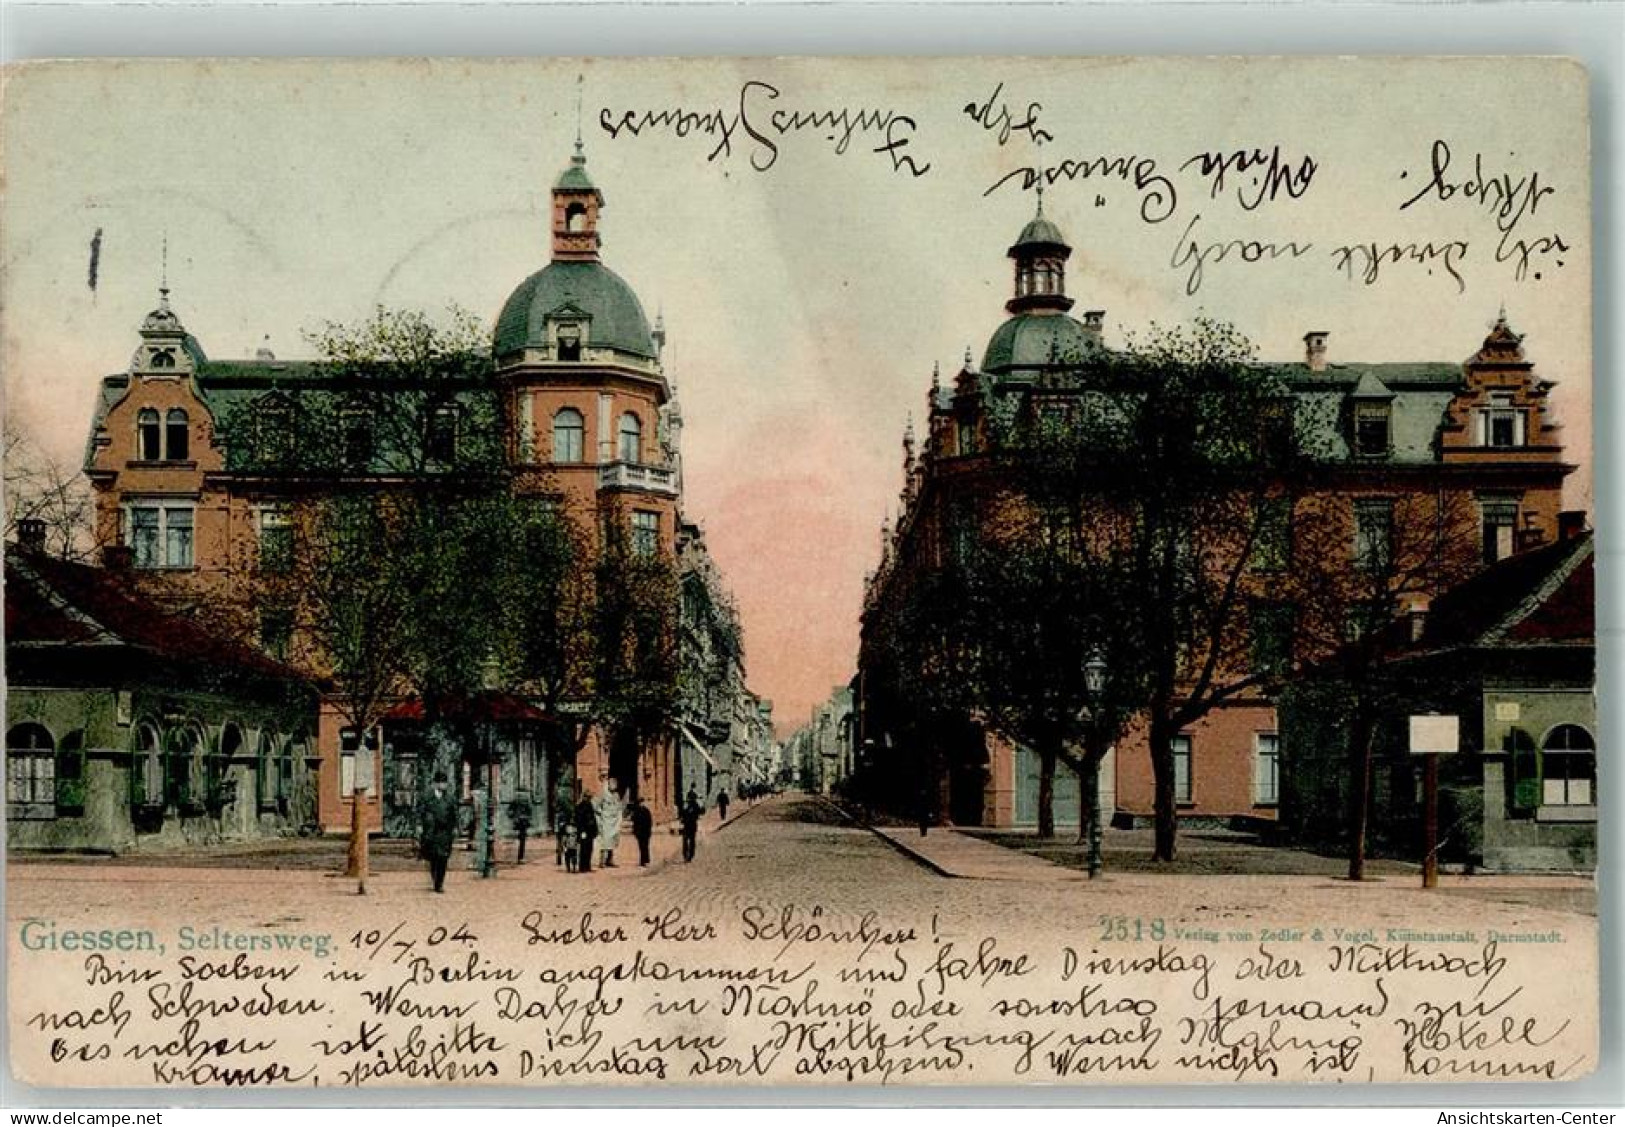 Giessen, Seltersweg. 10/7 04. Lieber Herr Schönherr!
2518 Verlag von Zedler & Vogel, Kunstanstalt, Darmstadt.
Bin soeben in Berlin angekommen und fahre Dienstag oder Mittwoch
nach Schweden. Wenn Daher in Malmö oder sonstwo jemand zu
besuchen ist, bitte ich um Mitteilung nach Malmö Hotell
Kramer, spätestens Dienstag dort abgehend. Wenn nichts ist, komme
ich direkt nach
Nkpg. Viele Grüsse
Ihr
Julius Strauss
Ansichtskarten-Center